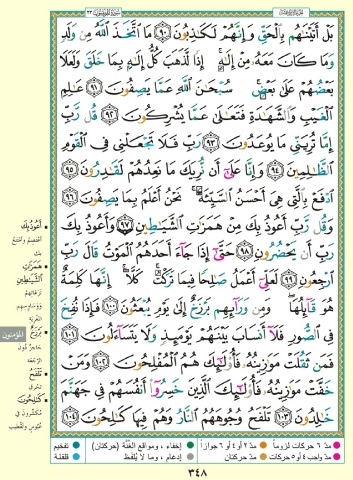 سُورَةُ المُؤْمِنُونَ ٢٣
بَلْ أَتَيْنَٰهُم بِٱلْحَقِّ وَإِنَّهُمْ لَكَٰذِبُونَ ٩٠ مَا ٱتَّخَذَ ٱللَّهُ مِن وَلَدٍ
وَمَا كَانَ مَعَهُۥ مِنْ إِلَٰهٍ ۚ إِذًا لَّذَهَبَ كُلُّ إِلَٰهٍۭ بِمَا خَلَقَ وَلَعَلَا
بَعْضُهُمْ عَلَىٰ بَعْضٍ ۚ سُبْحَٰنَ ٱللَّهِ عَمَّا يَصِفُونَ ٩١ عَٰلِمِ
ٱلْغَيْبِ وَٱلشَّهَٰدَةِ فَتَعَٰلَىٰ عَمَّا يُشْرِكُونَ ٩٢ قُل رَّبِّ
إِمَّا تُرِيَنِّي مَا يُوعَدُونَ ٩٣ رَبِّ فَلَا تَجْعَلْنِي فِي ٱلْقَوْمِ
ٱلظَّٰلِمِينَ ٩٤ وَإِنَّا عَلَىٰٓ أَن نُّرِيَكَ مَا نَعِدُهُمْ لَقَٰدِرُونَ ٩٥
ٱدْفَعْ بِٱلَّتِي هِيَ أَحْسَنُ ٱلسَّيِّئَةَ ۚ نَحْنُ أَعْلَمُ بِمَا يَصِفُونَ ٩٦
وَقُل رَّبِّ أَعُوذُ بِكَ مِنْ هَمَزَٰتِ ٱلشَّيَٰطِينِ ٩٧ وَأَعُوذُ بِكَ
رَبِّ أَن يَحْضُرُونِ ٩٨ حَتَّىٰٓ إِذَا جَآءَ أَحَدَهُمُ ٱلْمَوْتُ قَالَ رَبِّ
ٱرْجِعُونِ ٩٩ لَعَلِّيٓ أَعْمَلُ صَٰلِحًا فِيمَا تَرَكْتُ ۚ كَلَّآ ۚ إِنَّهَا كَلِمَةٌ
هُوَ قَآئِلُهَا ۖ وَمِن وَرَآئِهِم بَرْزَخٌ إِلَىٰ يَوْمِ يُبْعَثُونَ ١٠٠ فَإِذَا نُفِخَ
فِي ٱلصُّورِ فَلَآ أَنسَابَ بَيْنَهُمْ يَوْمَئِذٍ وَلَا يَتَسَآءَلُونَ ١٠١
فَمَن ثَقُلَتْ مَوَٰزِينُهُۥ فَأُو۟لَٰٓئِكَ هُمُ ٱلْمُفْلِحُونَ ١٠٢ وَمَنْ
خَفَّتْ مَوَٰزِينُهُۥ فَأُو۟لَٰٓئِكَ ٱلَّذِينَ خَسِرُوٓا۟ أَنفُسَهُمْ فِي جَهَنَّمَ
خَٰلِدُونَ ١٠٣ تَلْفَحُ وُجُوهَهُمُ ٱلنَّارُ وَهُمْ فِيهَا كَٰلِحُونَ ١٠٤
أَعُوذُ بِكَ
أعتصم وأمتنع
بك
هَمَزَاتِ
الشَّيَاطِينِ
نزغاتهم
ووساوسهم
المغرية
المؤمنون
بَرْزَخٌ
حاجز دون
الرجعة
تَلْفَحُ
تحرق
كَالِحُونَ
مكشرون في
عبوس وتقطيب
مدّ ٦ حركات لزوماً
مدّ ٢ أو ٤ أو ٦ جوازاً
إخفاء، ومواقع الغُنَّة (حركتان)
تفخيم
مدّ واجب ٤ أو ٥ حركات
مدّ حركتان
إدغام، وما لا يُلفظ
قلقلة
٣٤٨